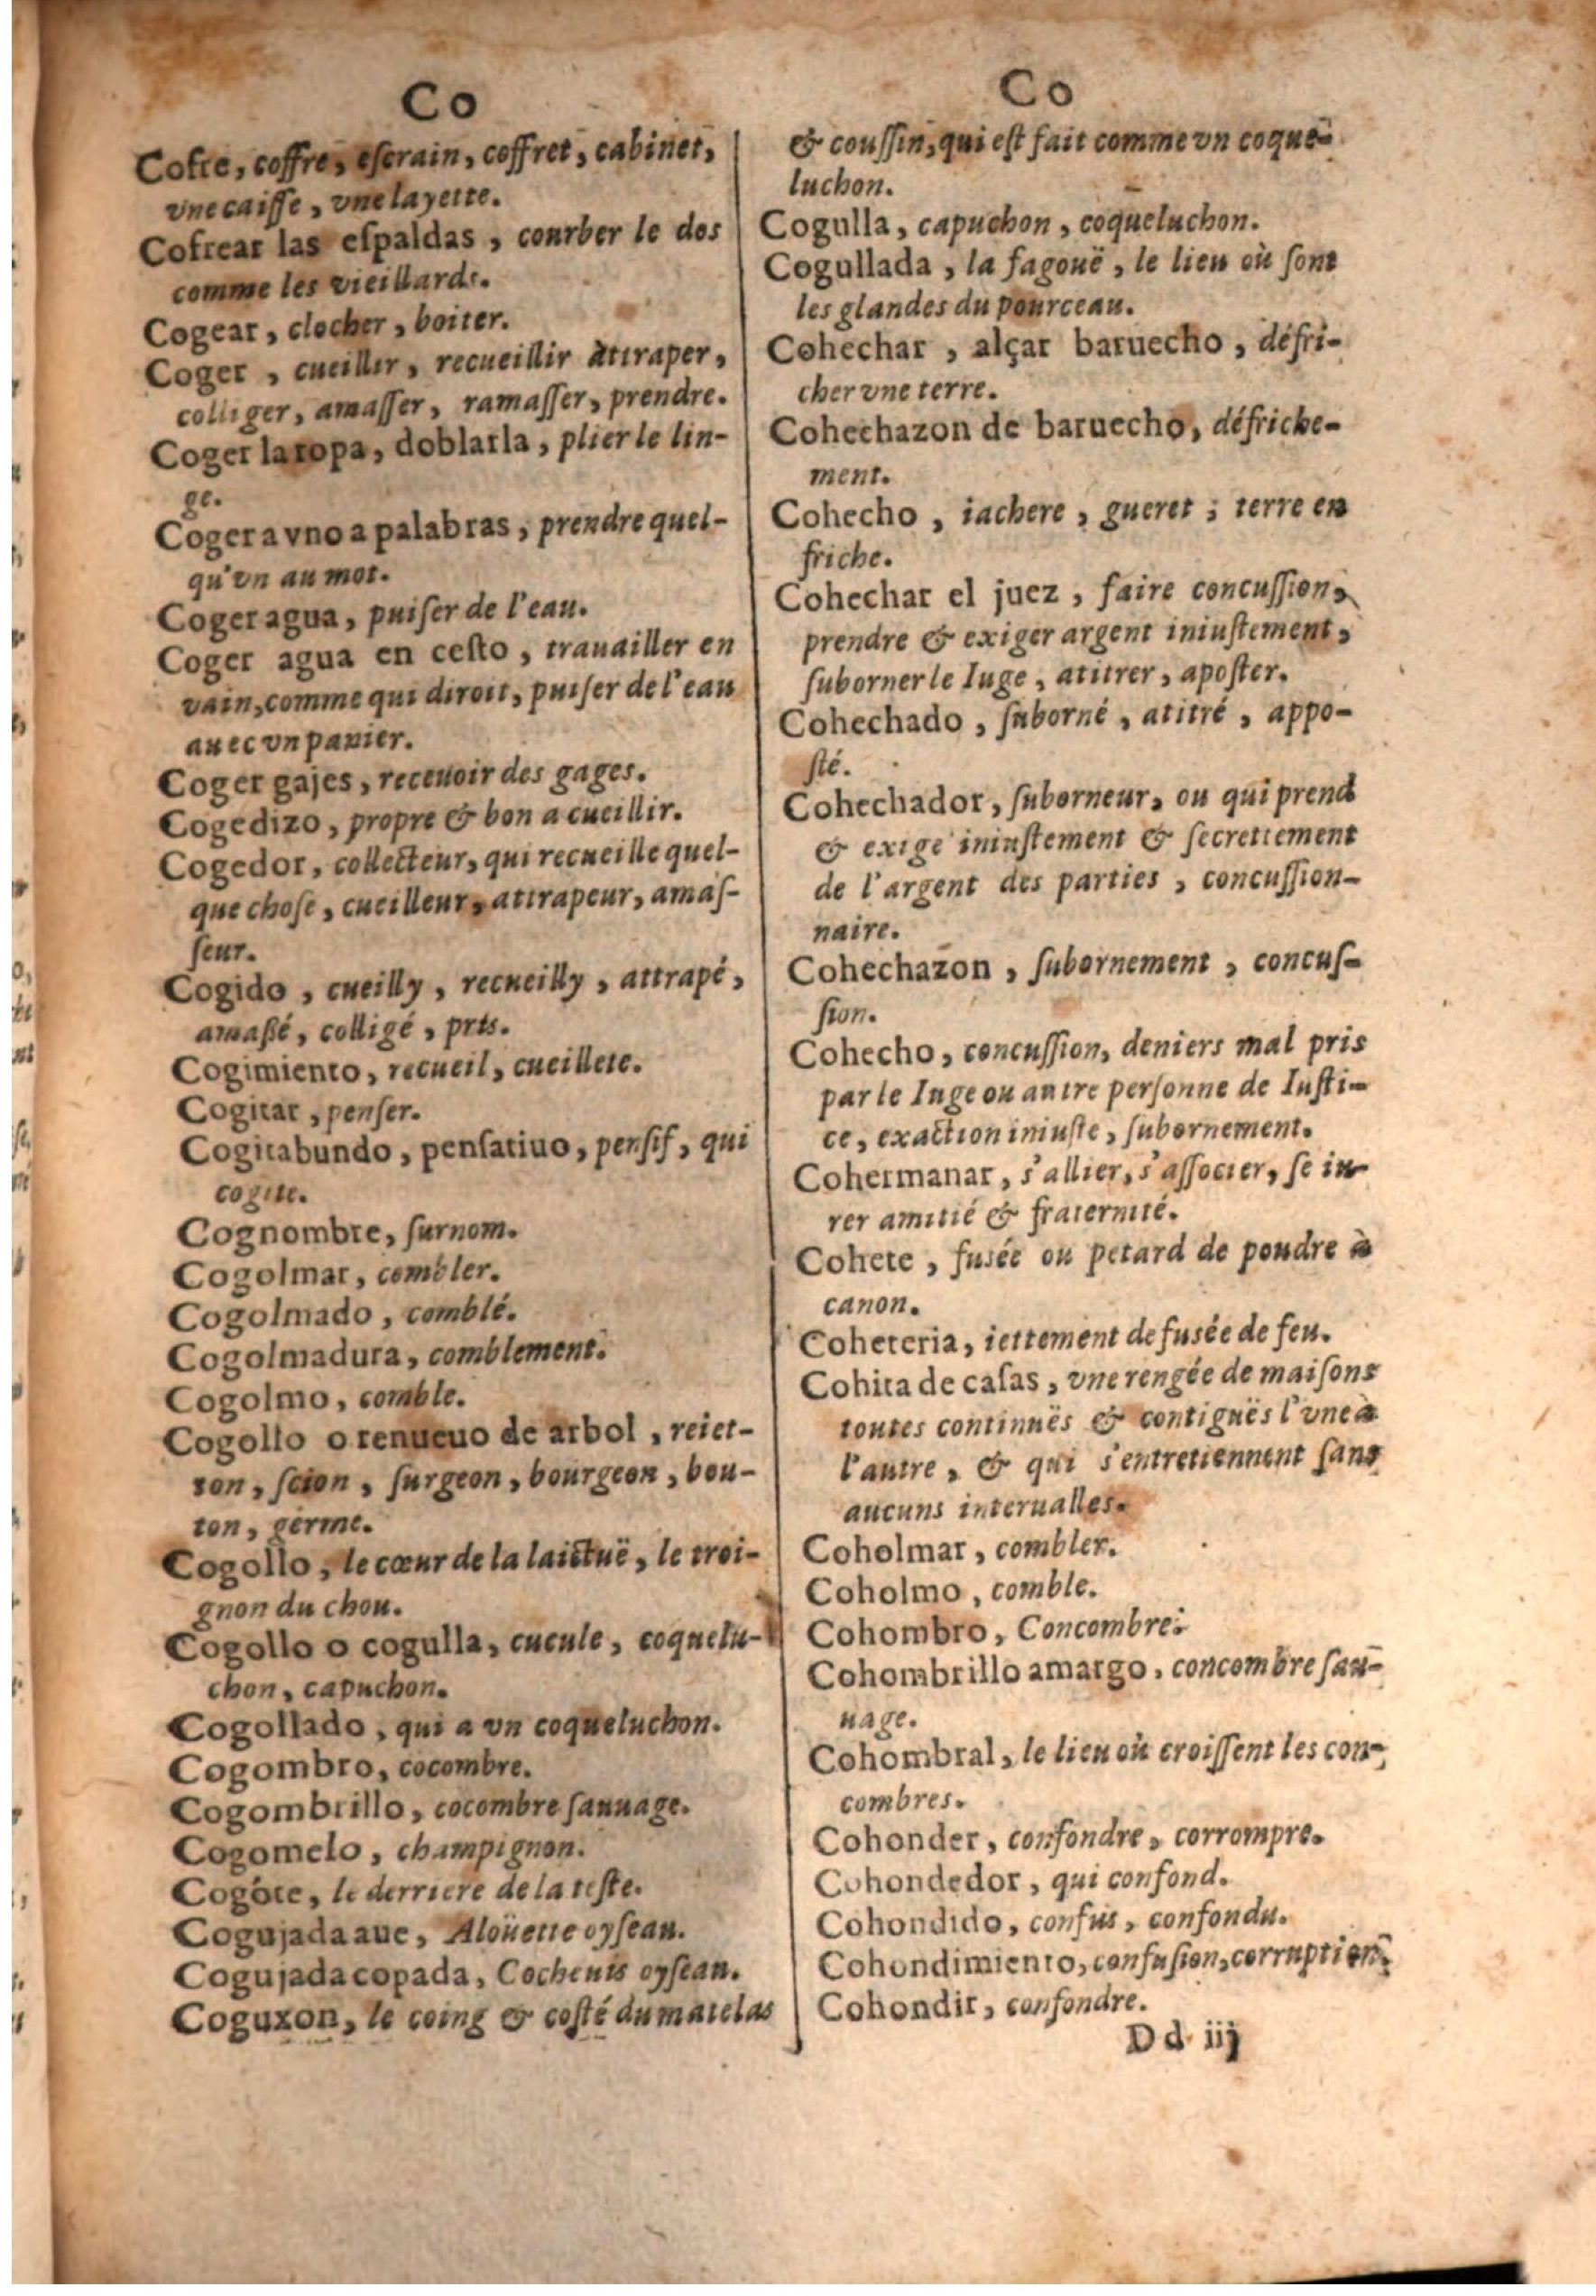 Co
Cofre, coffre, eſcrain, coffret, cabinet,
vne caiſſe, vne layette.
Cofrear las eſpaldas, courber le dos
comme les vieillards.
Cogear, clocher, boiter.
Coger, cueillir, recueillir attraper,
colliger, amaſſer, ramaſſer, prendre.
Coger la ropa, doblarla, plier le lin-
ge.
Coger a vno a palabras, prendre quel-
qu'vn au mot.
Coger agua, puiſer de l'eau.
Coger agua en ceſto, trauailler en
vain, comme qui diroit, puiſer de l'eau
auec vn panier.
Coger gajes, receuoir des gages.
Cogedizo, propre & bon a cueillir.
Cogedor, collecteur, qui recueille quel-
que choſe, cueilleur, attrapeur, amaſ-
ſeur.
Cogido, cueilly, recueilly, attrapé,
amaßé, colligé, pris.
Cogimiento, recueil, cueillete.
Cogitar, penſer.
Cogitabundo, penſatiuo, penſif, qui
cogite.
Cognombre, ſurnom.
Cogolmar, combler.
Cogolmado, comblé.
Cogolmadura, comblement.
Cogolmo, comble.
Cogollo o renueuo de arbol, reiet-
ton, ſcion, ſurgeon, bourgeon, bou-
ton, germe.
Cogollo, le cœur de la laictuë, le troi-
gnon du chou.
Cogollo o cogulla, cucule, coquelu-
chon, capuchon.
Cogollado, qui a vn coqueluchon.
Cogombro, cocombre.
Cogombrillo, cocombre ſauuage.
Cogomelo, champignon.
Cogote, le derriere de la teſte.
Cogujada aue, Aloüette oyſeau.
Cogujada copada, Cocheuis oyſeau.
Coguxon, le coing & coſté du matelas
Co
& couſſin, qui eſt fait comme vn coque-
luchon.
Cogulla, capuchon, coqueluchon.
Cogullada, la fagouë, le lieu où ſont
les glandes du pourceau.
Cohechar, alçar baruecho, défri-
cher vne terre.
Cohechazon de baruecho, défriche-
ment.
Cohecho, iachere, gueret; terre en
friche.
Cohechar el juez, faire concuſſion,
prendre & exiger argent iniuſtement,
ſuborner le Iuge, atitrer, apoſter.
Cohechado, ſuborné, atitré, appo-
ſté.
Cohechador, ſuborneur, ou qui prend
& exige iniuſtement & ſecrettement
de l'argent des parties, concuſſion-
naire.
Cohechazon, ſubornement, concuſ-
ſion.
Cohecho, concuſſion, deniers mal pris
par le Iuge ou autre perſonne de Iuſti-
ce, exaction iniuſte, ſubornement.
Cohermanar, s'allier, s'aſſocier, ſe iu-
rer amitié & fraternité.
Cohete, fusée ou petard de poudre à
canon.
Coheteria, iettement de fusée de feu.
Cohita de caſas, vne rengée de maiſons
toutes continuës & contiguës l'vne à
l'autre, & qui s'entretiennent ſans
aucuns interualles.
Coholmar, combler.
Coholmo, comble.
Cohombro, Concombre.
Cohombrillo amargo, concombre ſau-
uage.
Cohombral, le lieu où croiſſent les con-
combres.
Cohonder, confondre, corrompre.
Cohondedor, qui confond.
Cohondido, confus, confondu.
Cohondimiento, confuſion, corruption.
Cohondir, confondre.
Dd iij